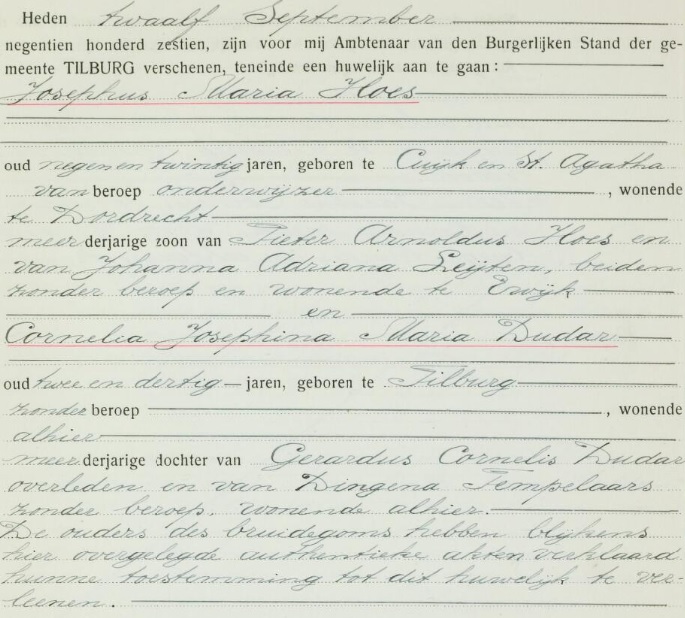 Heden twaalf September
negentien honderd zestien, zijn voor mij Ambtenaar van den Burgerlijken Stand der ge-
meente TILBURG verschenen, teneinde een huwelijk aan te gaan:
Josephus Maria Hoes
oud negen en twintig jaren, geboren te Cuijk en St. Agatha
van beroep onderwijzer, wonende
te Dordrecht
meerderjarige zoon van Pieter Arnoldus Hoes en
van Johanna Adriana Leijten, beiden
zonder beroep en wonende te Ewijk
en
Cornelia Josephina Maria Dudar
oud twee en dertig jaren, geboren te Tilburg
zonder beroep, wonende
alhier
meerderjarige dochter van Gerardus Cornelis Dudar
overleden en van Dingena Tempelaars
zonder beroep, wonende alhier.
De ouders des bruidegoms hebben blijkens
hier overgelegde authentieke akten verklaard
hunne toestemming tot dit huwelijk te ver-
leenen.